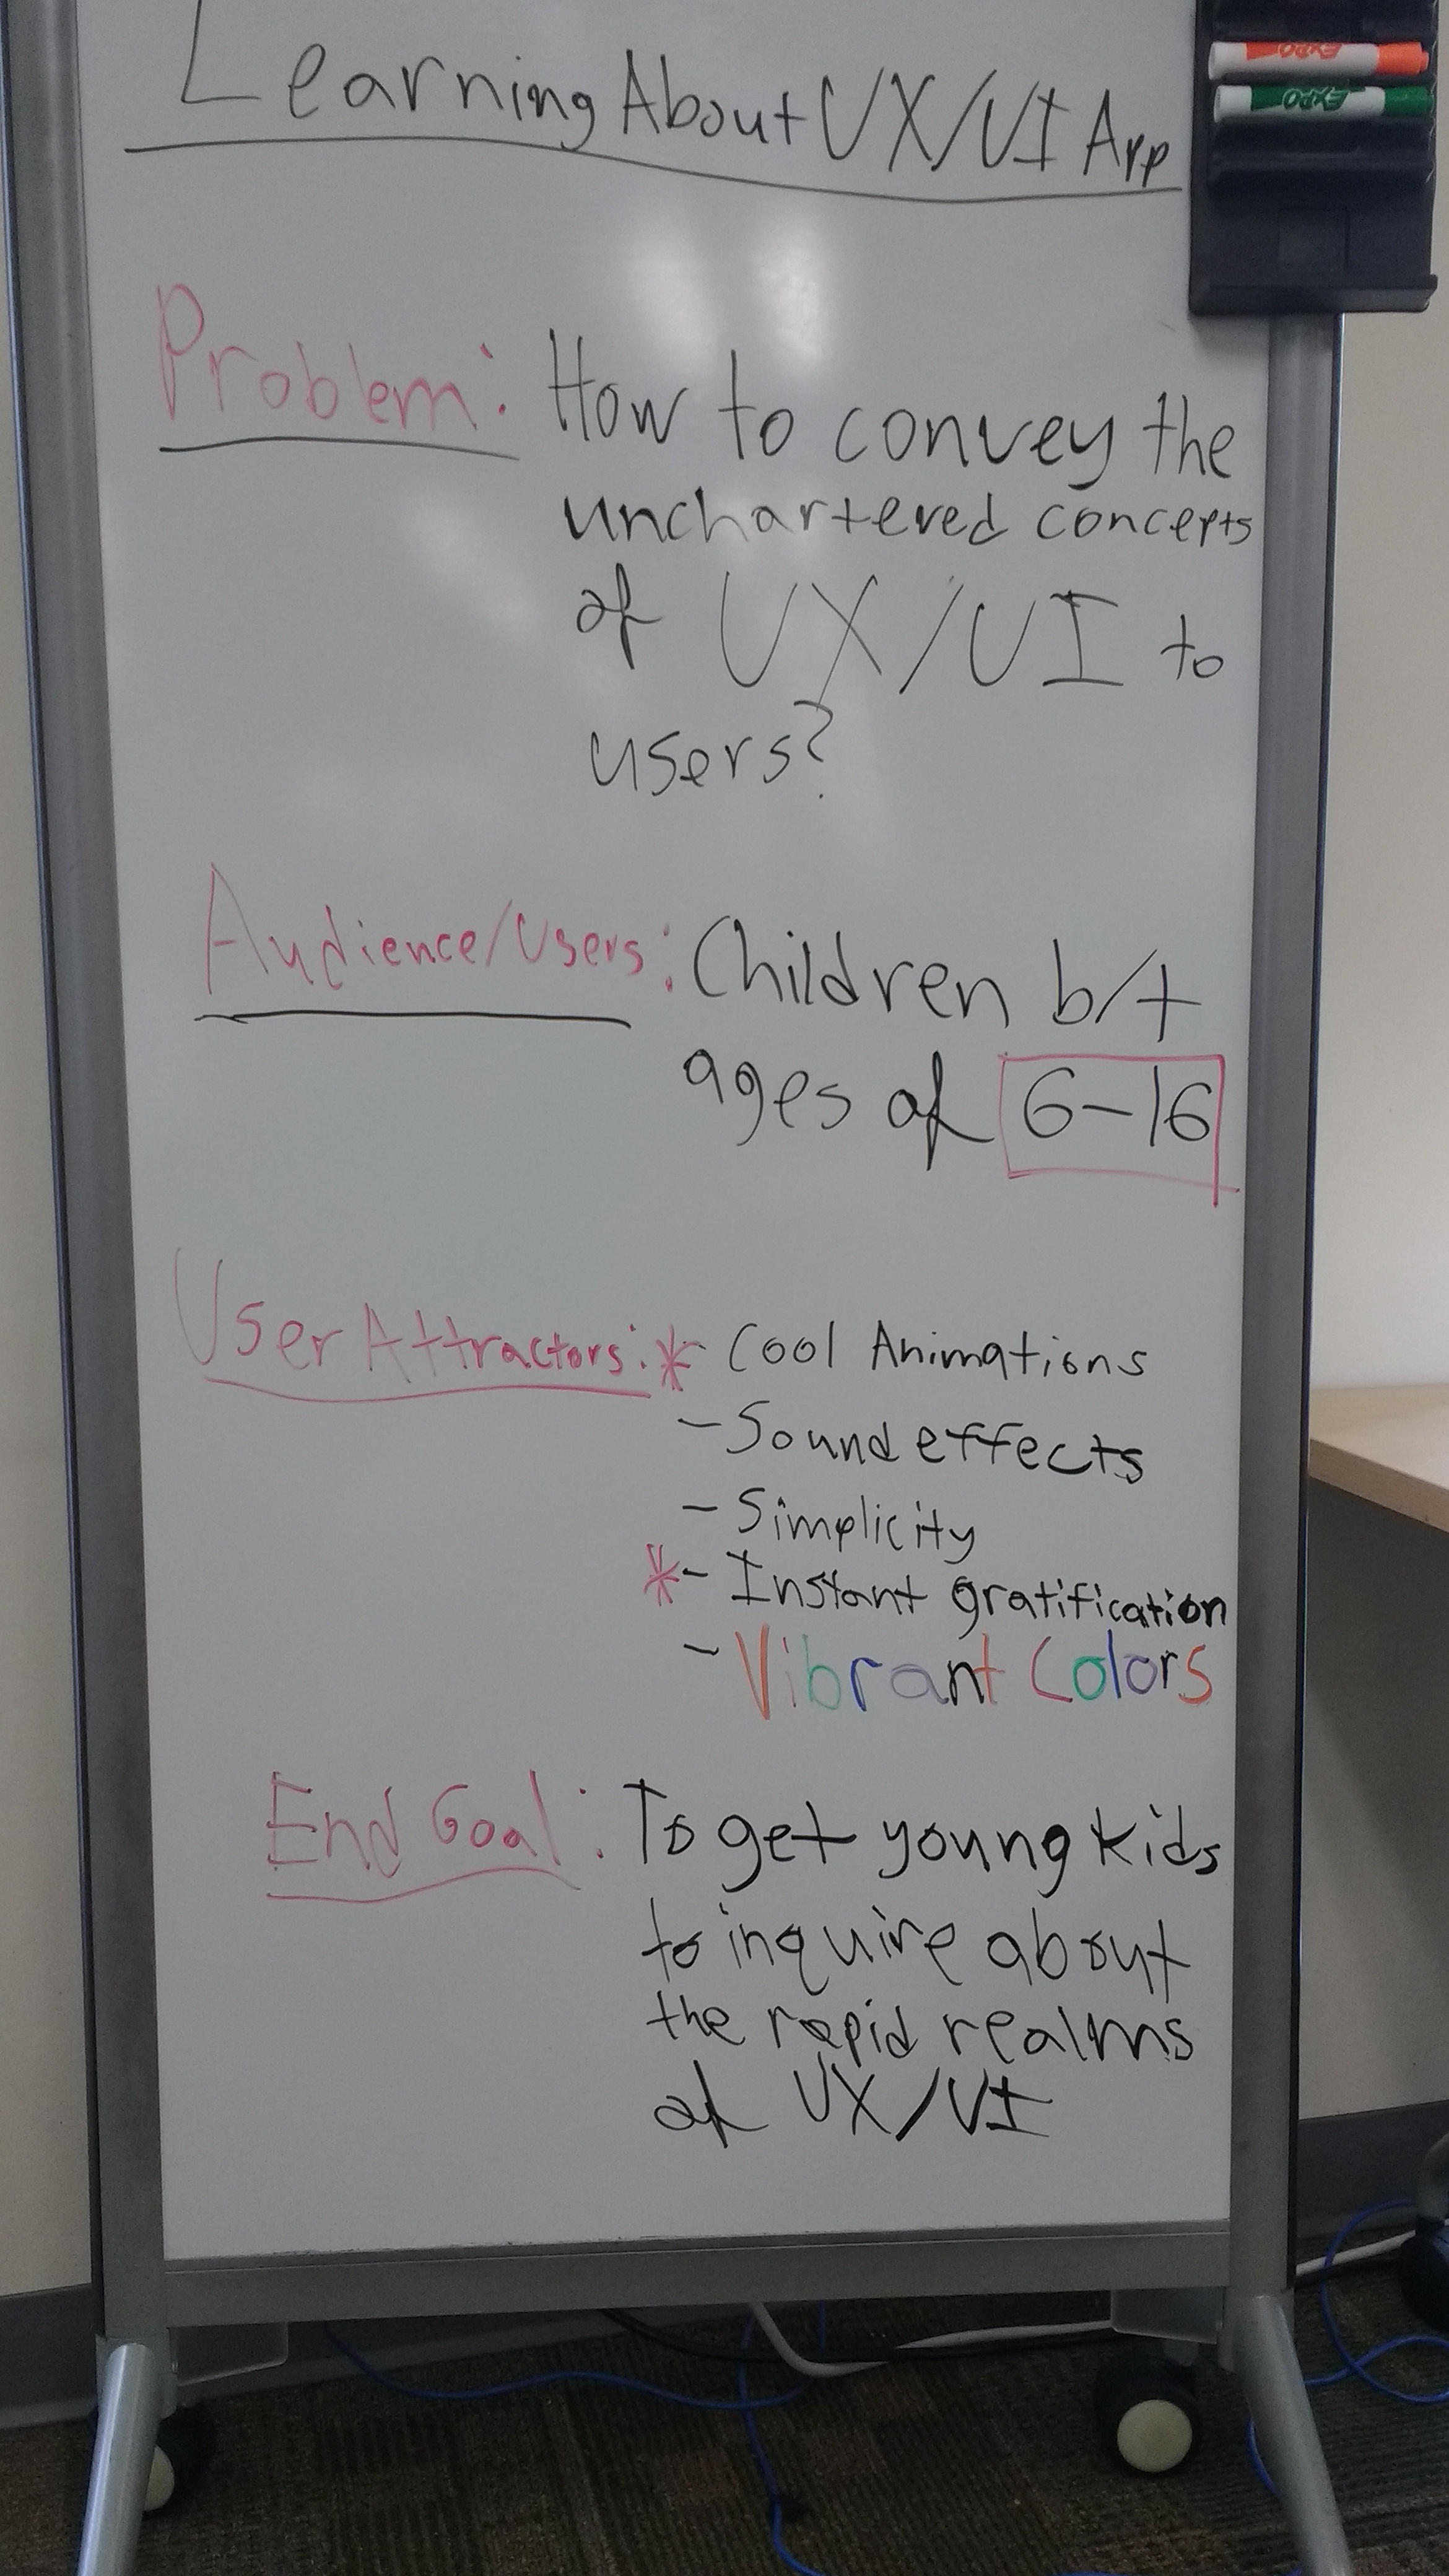 EXPO
EXPO
Learning About UX/UI App
Problem: How to convey the
unchartered concepts
of UX/UI to
users?
Audience/Users: Children b/t
ages of 6-16
User Attractors: * Cool Animations
- Sound effects
- Simplicity
*- Instant gratification
- Vibrant Colors
End Goal: To get young kids
to inquire about
the rapid realms
of UX/UI